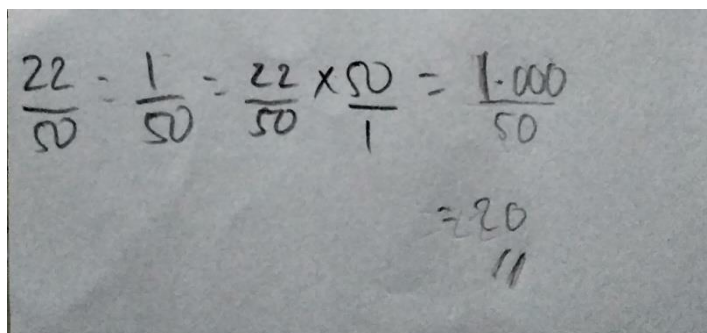 22/50 : 1/50 = 22/50 × 50/1 = 1.000/50
= 20 //